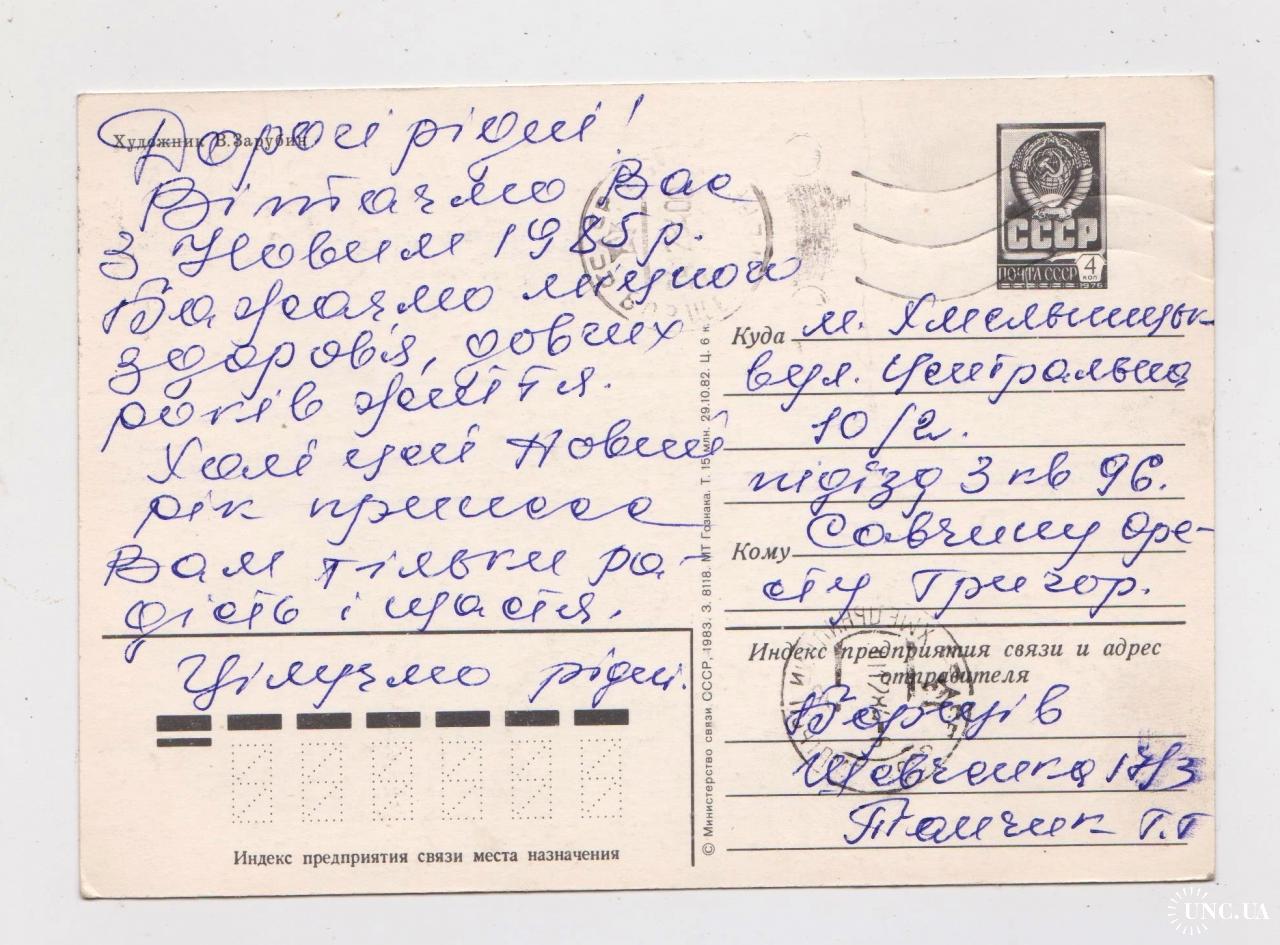 Художник В.Зарубин
Дорогі рідні!
Вітаємо Вас
З Новим 1985 р.
Бажаємо міцного
здоров'я, довгих
років життя.
Хай цей Новий
рік принесе
Вам тільки ра-
дість і щастя.
Цілуємо рідні.
Индекс предприятия связи места назначения
© Министерство связи СССР, 1983. З. 8118. МТ Гознака. Т. 15 млн. 29.10.82. Ц. 6 к.
СССР
ПОЧТА СССР
4
КОП
1976
Куда м. Хмельницьк
вул. Центральна
10/2.
підїзд 3 кв 96.
Кому Савчину Оре-
сту Григор.
Индекс предприятия связи и адрес
отправителя
Шевченка 17/3
UNC.UA